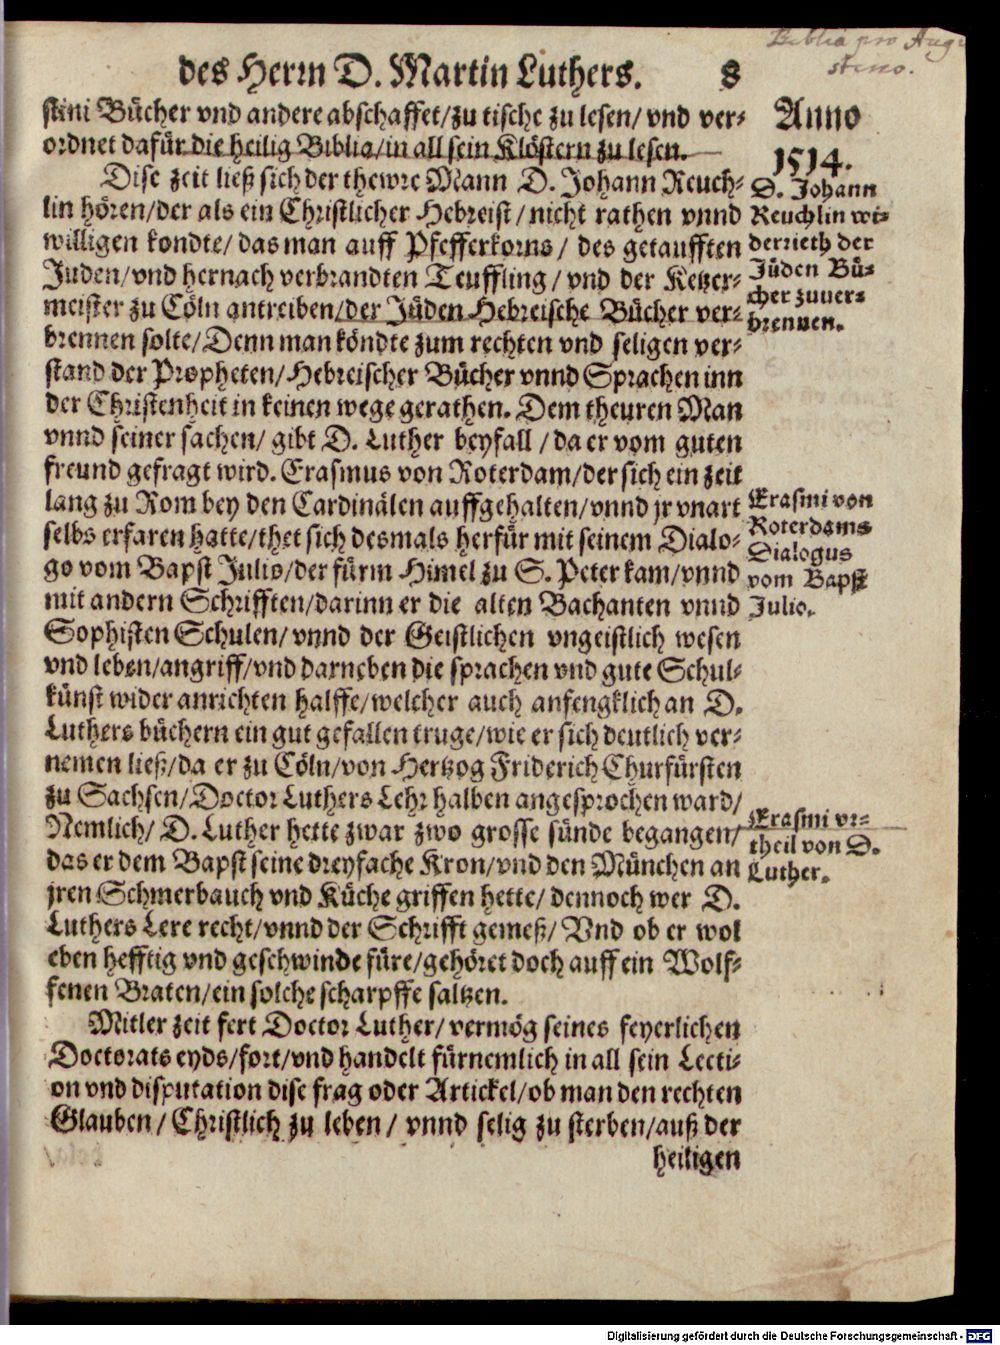 Biblia pro Augu
stino.
des Herrn D. Martin Luthers. 8
stini Bücher vnd andere abschaffet/zu tische zu lesen/ vnd ver-
ordnet dafür die heilig Biblia/in all sein Klöstern zu lesen.
Anno
1514.
Dise zeit ließ sich der thewre Mann D. Johann Reuch-
lin hören/der als ein Christlicher Hebreist/ nicht rathen vnnd
willigen kondte/ das man auff Pfefferkorns/ des getaufften
Juden/vnd hernach verbrandten Teuffling/ vnd der Ketzer-
meister zu Cöln antreiben/der Jüden Hebreische Bücher ver-
brennen solte/Denn man köndte zum rechten vnd seligen ver-
stand der Propheten/Hebreischer Bücher vnnd Sprachen inn
der Christenheit in keinen wege gerathen. Dem theuren Man
vnnd seiner sachen/ gibt D. Luther beyfall/da er vom guten
freund gefragt wird. Erasmus von Roterdam/der sich ein zeit
lang zu Rom bey den Cardinälen auffgehalten/vnnd jr vnart
selbs erfaren hatte/thet sich desmals herfür mit seinem Dialo-
go vom Bapst Julio/der fürm Himel zu S. Peter kam/vnnd
mit andern Schrifften/darinn er die alten Bachanten vnnd
Sophisten Schulen/vnnd der Geistlichen vngeistlich wesen
vnd leben/angriff/vnd darneben die sprachen vnd gute Schul-
künst wider anrichten halffe/welcher auch anfengklich an D.
Luthers büchern ein gut gefallen truge/wie er sich deutlich ver-
nemen ließ/da er zu Cöln/von Hertzog Friderich Churfürsten
zu Sachsen/Doctor Luthers Lehr halben angesprochen ward/
Nemlich/ D. Luther hette zwar zwo grosse sünde begangen/
das er dem Bapst seine dreyfache Kron/vnd den München an
jren Schmerbauch vnd Küche griffen hette/ dennoch wer D.
Luthers Lere recht/vnnd der Schrifft gemeß/ Vnd ob er wol
eben hefftig vnd geschwinde füre/gehöret doch auff ein Wolf-
fenen Braten/ein solche scharpffe saltzen.
Mitler zeit fert Doctor Luther/ vermög seines feyerlichen
Doctorats eyds/fort/vnd handelt fürnemlich in all sein Lecti-
on vnd disputation dise frag oder Artickel/ob man den rechten
Glauben/ Christlich zu leben/ vnnd selig zu sterben/auß der
heiligen
D. Johann
Reuchlin wi-
derrieth der
Jüden Bü-
cher zuuer-
brennen.
Erasmi von
Roterdams
Dialogus
vom Bapst
Julio.
Erasmi vr-
theil von D.
Luther.
Digitalisierung gefördert durch die Deutsche Forschungsgemeinschaft - DFG